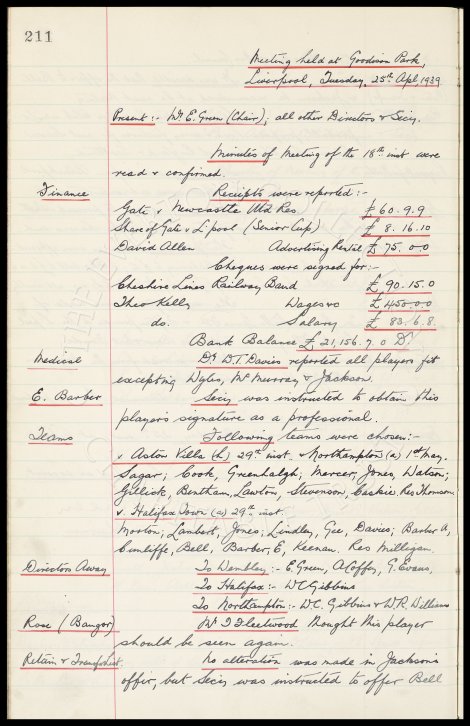 211
Meeting held at Goodison Park,
Liverpool, Tuesday, 25th Apl. 1939
Present:- Mr E. Green (Chair), all other Directors & Secy.
Minutes of Meeting of the 18th inst were
read & confirmed.
Finance Receipts were reported:-
Gate v Newcastle Utd Res £ 60. 9. 9
Share of Gate v L'pool (Senior Cup) £ 8. 16. 10
David Allen Advertising Rental £ 75. 0. 0
Cheques were signed for:-
Cheshire Lines Railway Band £ 90. 15. 0
Theo Kelly Wages &c £ 450. 0. 0
do. Salary £ 83. 6. 8.
Bank Balance £ 21,156. 7. 0 Dr
Medical Dr. D.T. Davies reported all players fit
excepting Wyles, McMurray & Jackson.
E. Barber Secy was instructed to obtain this
player's signature as a professional.
Teams Following teams were chosen:-
v Aston Villa (h) 29th inst. & Northampton (a) 1st May.
Sagar; Cook, Greenhalgh, Mercer, Jones, Watson;
Gillick, Bentham, Lawton, Stevenson, Caskie Res Thomson
v. Halifax Town (a) 29th inst:
Morton; Lambert, Jones; Lindley, Gee, Davies; Barber A,
Cunliffe, Bell, Barber, E, Keenan, Res Milligan.
Directors Away To Wembley:- E. Green, A. Coffey, G. Evans,
To Halifax:- W.C. Gibbins
To Northampton:- W.C. Gibbins & W.R. Williams
Rose (Bangor) Mr J Fleetwood thought this player
should be seen again.
Retain & Transfer list. No alteration was made in Jackson's
offer, but Secy was instructed to offer Bell